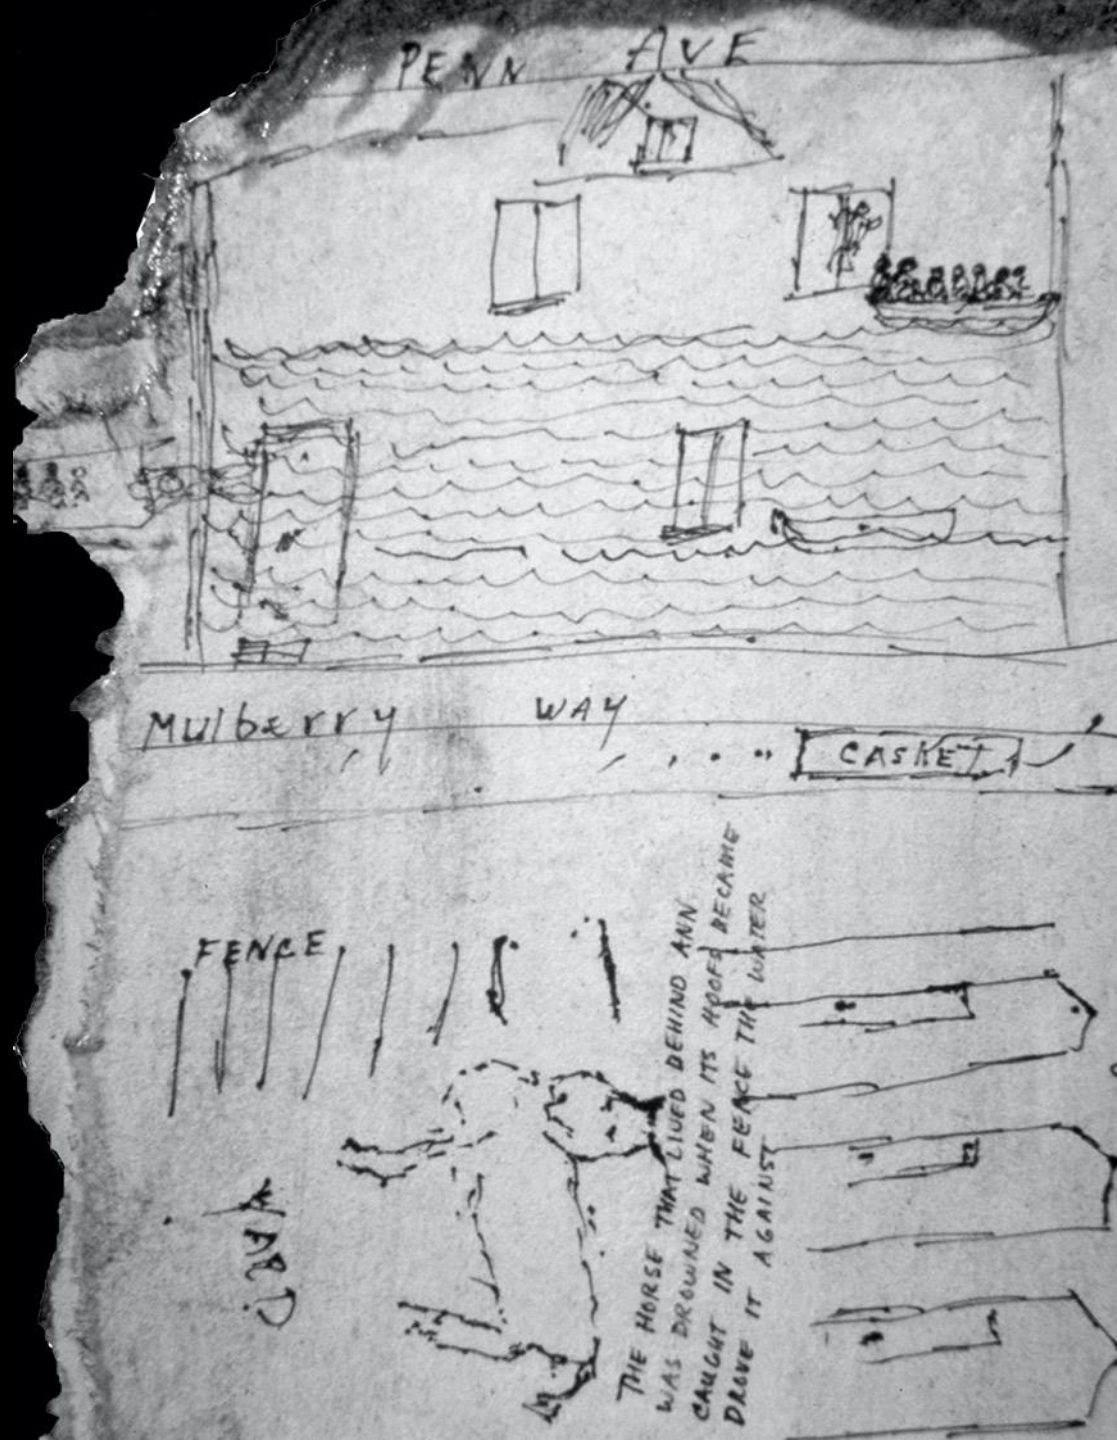 PENN AVE
Mulberry WAY
CASKET
FENCE
YARD
THE HORSE THAT LIVED BEHIND ANN
WAS DROWNED WHEN ITS HOOFS BECAME
CAUGHT IN THE FENCE THE WATER
DROVE IT AGAINST